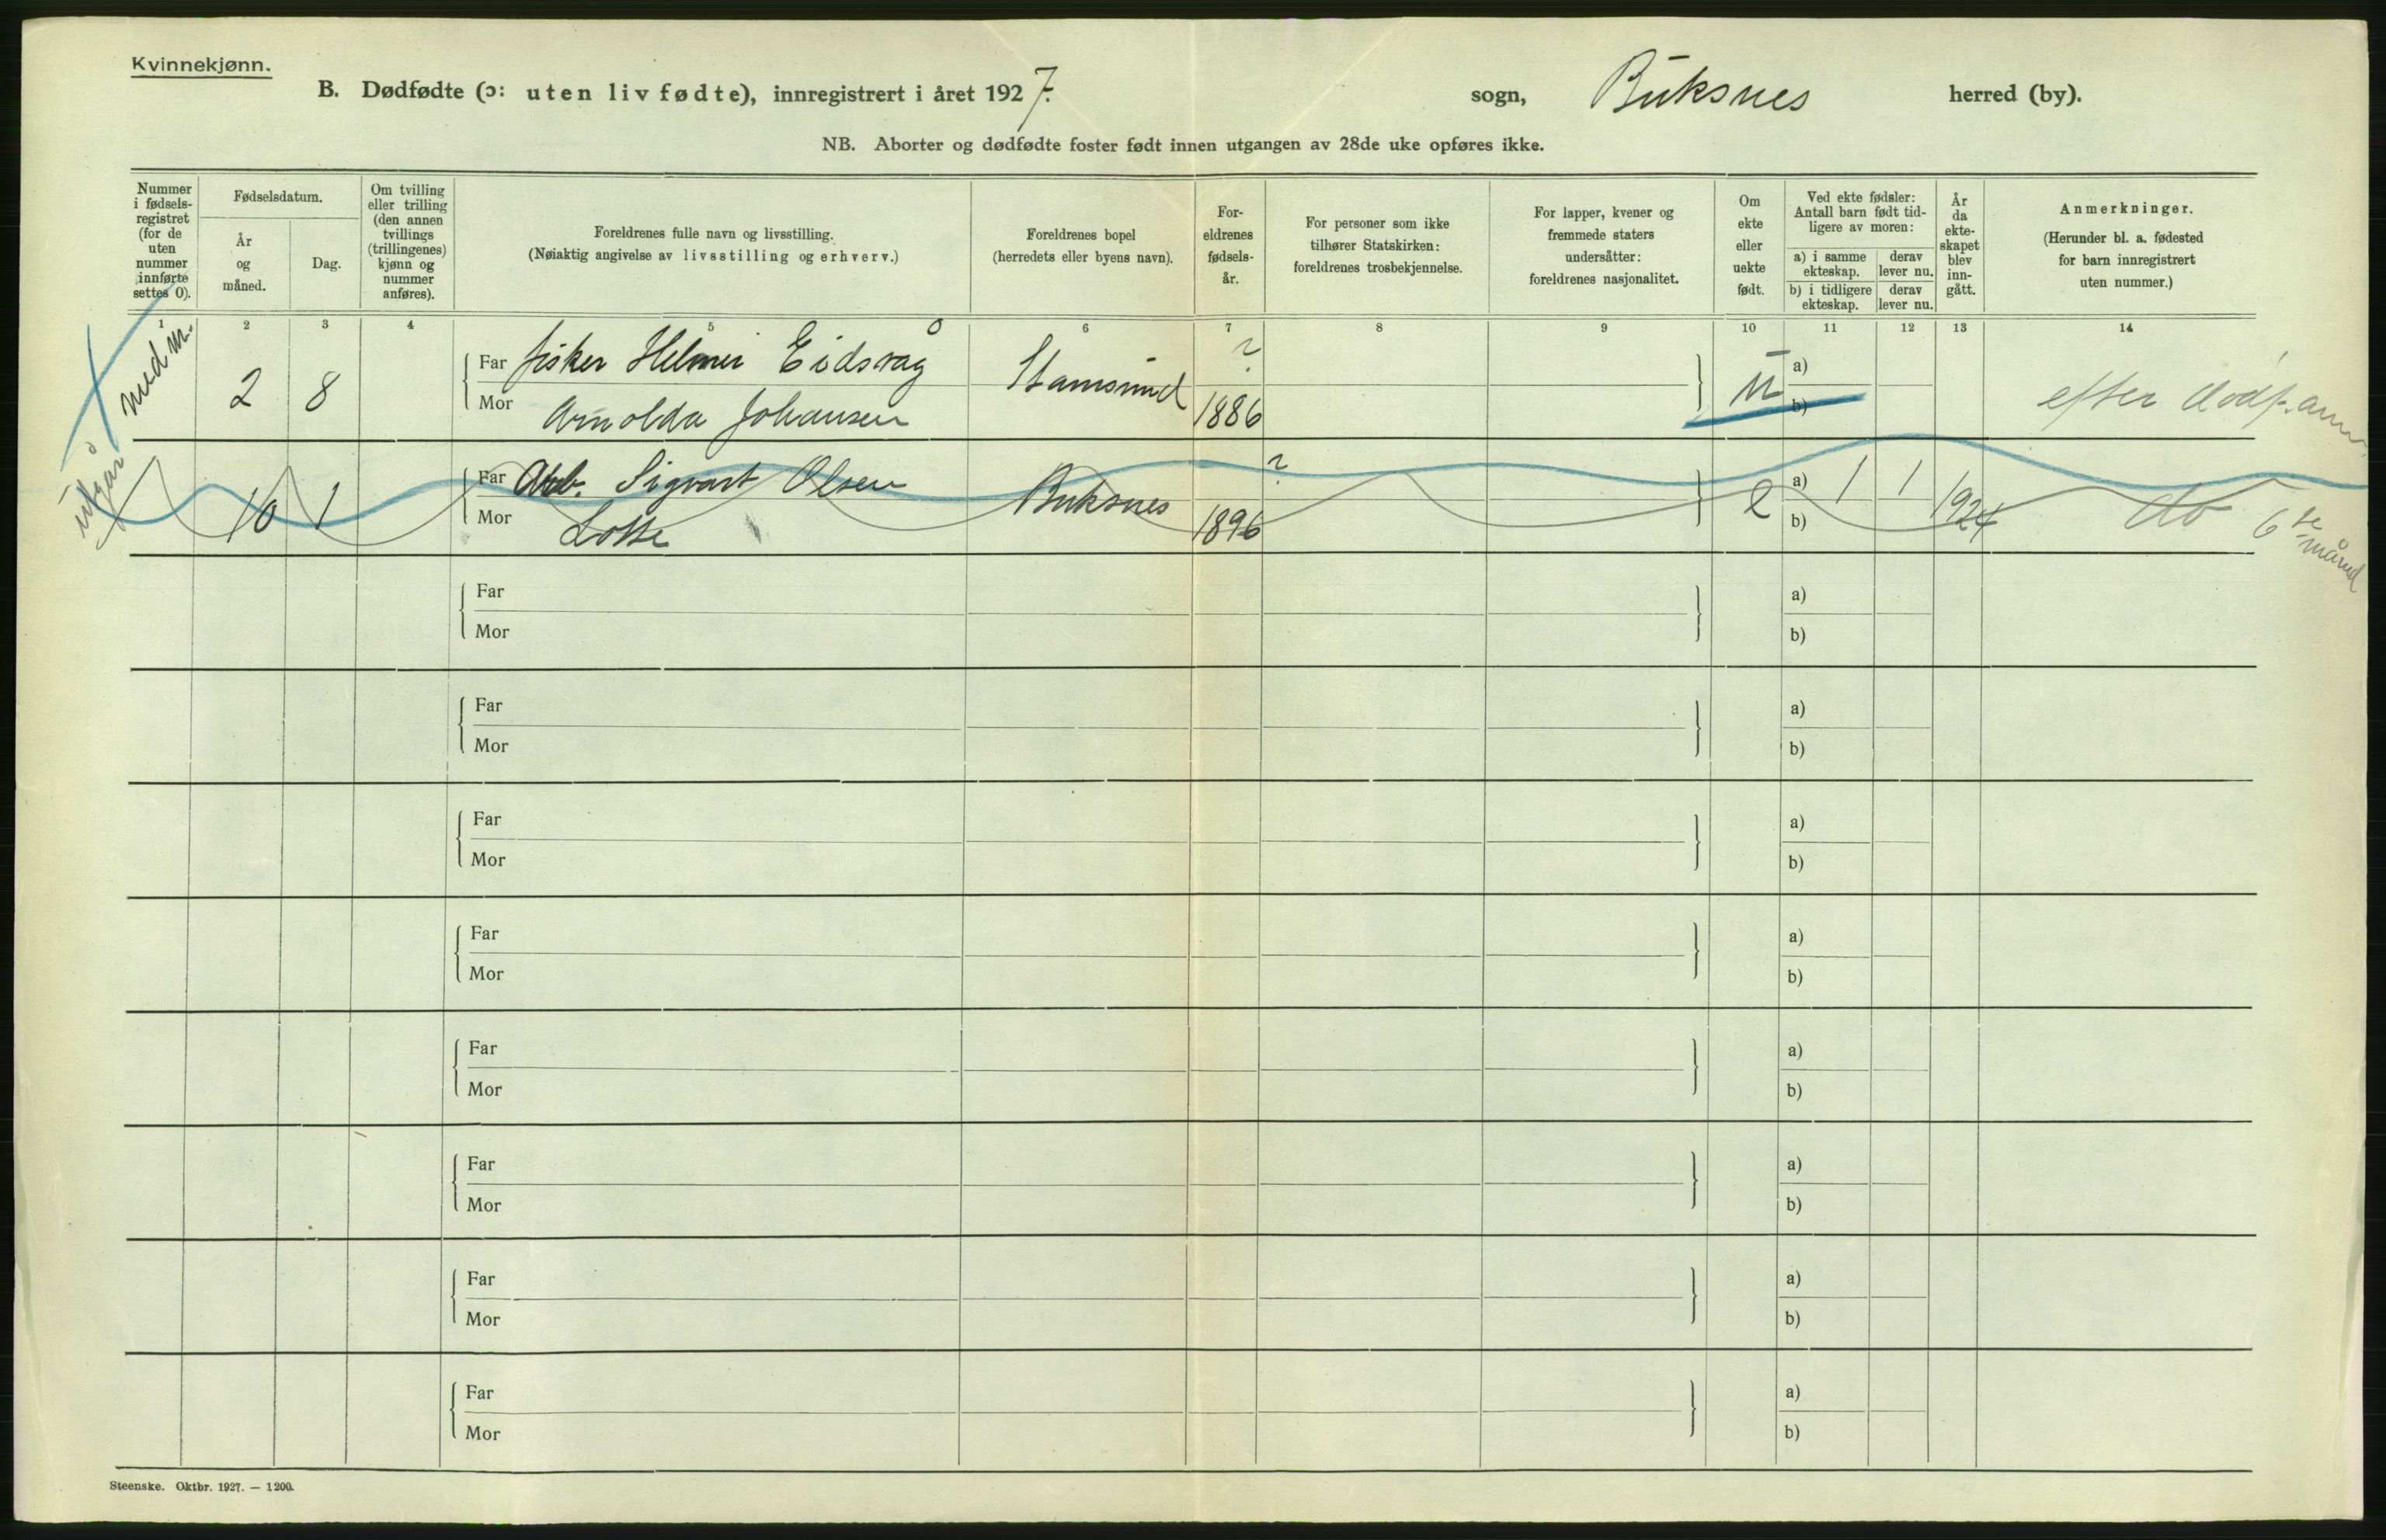 Kvinnekjønn.
B. Dødfødte (ɔ: uten liv fødte), innregistrert i året 1927. sogn, Buksnes herred (by).
NB. Aborter og dødfødte foster født innen utgangen av 28de uke opføres ikke.
Nummer i fødsels-registret (for de uten nummer innførte settes 0).
Fødselsdatum.
År og måned.
Dag.
Om tvilling eller trilling (den annen tvillings (trillingenes) kjønn og nummer anføres).
Foreldrenes fulle navn og livsstilling.
(Nøiaktig angivelse av livsstilling og erhverv.)
Foreldrenes bopel
(herredets eller byens navn).
For-eldrenes fødsels-år.
For personer som ikke tilhører Statskirken: foreldrenes trosbekjennelse.
For lapper, kvener og fremmede staters undersåtter: foreldrenes nasjonalitet.
Om ekte eller uekte født.
Ved ekte fødsler: Antall barn født tid-ligere av moren:
a) i samme ekteskap.
derav lever nu.
b) i tidligere ekteskap.
derav lever nu.
År da ekte-skapet blev inn-gått.
Anmerkninger.
(Herunder bl. a. fødested for barn innregistrert uten nummer.)
1 2 3 4 5 6 7 8 9 10 11 12 13 14
med m.
2 8 Far fisker Helmer Eidsvåg Stamsund ? u a)
Mor Arnolda Johansen 1886 b) efter dødf. anm
utgår
10 1 Far Arb. Sigvart Olsen Buksnes ? e a) 1 1 1924 do 6te måned
Mor Lotte 1896 b)
Far a)
Mor b)
Far a)
Mor b)
Far a)
Mor b)
Far a)
Mor b)
Far a)
Mor b)
Far a)
Mor b)
Far a)
Mor b)
Far a)
Mor b)
Steenske. Oktbr. 1927. — 1200.